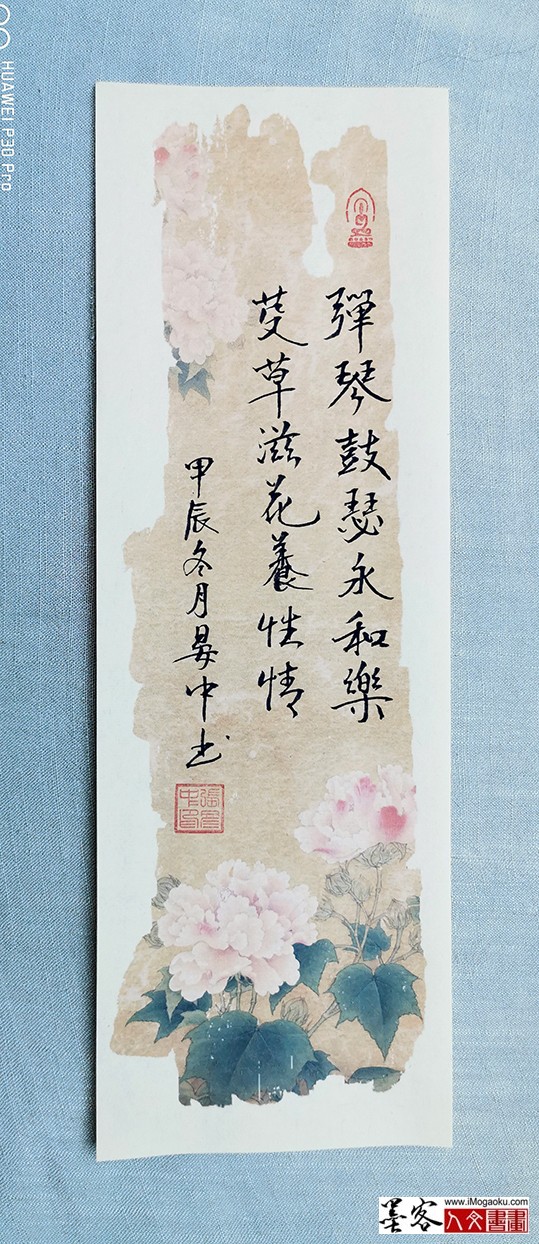 弹琴鼓瑟永和樂
芟草滋花養性情
甲辰冬月晏中书
HUAWEI P30 Pro
墨客
www.iMogaoku.com
人文書畫